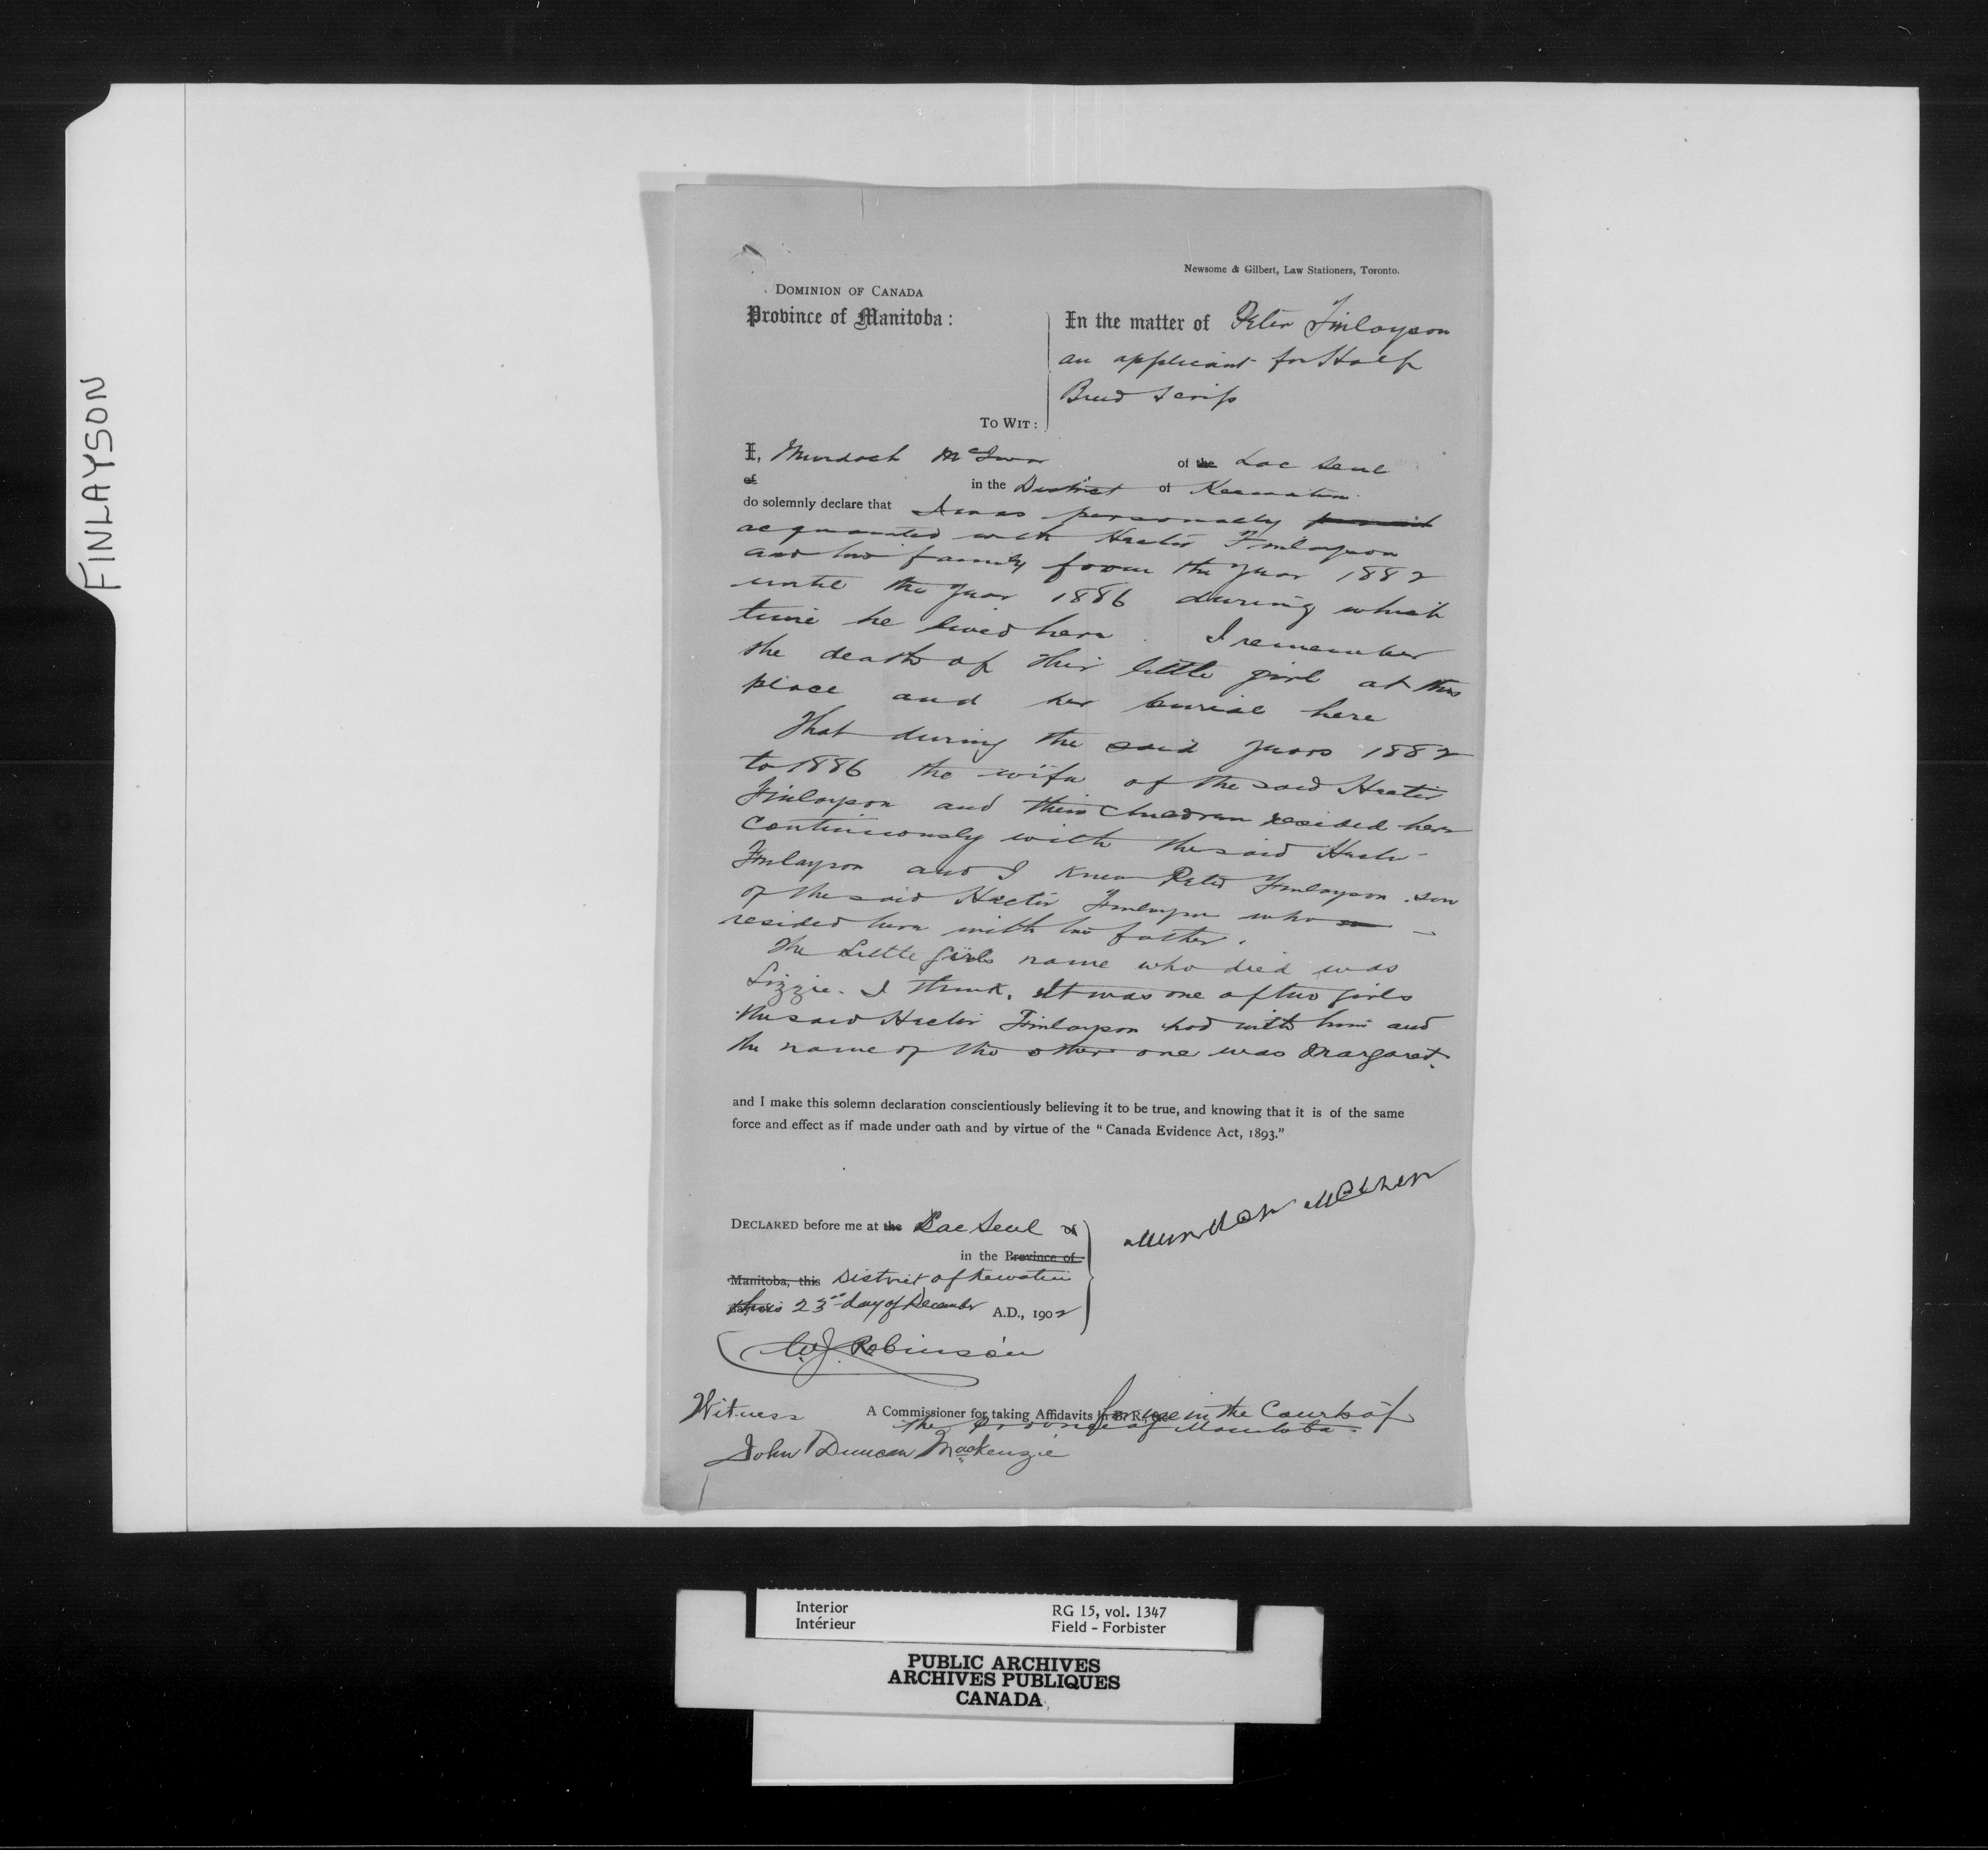 FINLAYSON
Newsome & Gilbert, Law Stationers, Toronto.
DOMINION OF CANADA
Province of Manitoba:
In the matter of Peter Finlayson
an applicant for Half
Breed Scrip
TO WIT:
I, Murdoch of the Lac Seul
of in the District of Keewatin
do solemnly declare that I was personally
acquainted with Hector Finlayson
and his family from the year 1882
until the year 1886 during which
time he lived here. I remember
the death of their little girl at this
place and her burial here
That during the said years 1882
to 1886 the wife of the said Hector
Finlayson and their children resided here
continuously with the said Hector
Finlayson and I knew Peter Finlayson son
of the said Hector Finlayson who
resided here with his father.
The little girls name who died was
Lizzie. I think. It was one of two girls
the said Hector Finlayson had with him and
the name of the other one was Margaret.
and I make this solemn declaration conscientiously believing it to be true, and knowing that it is of the same
force and effect as if made under oath and by virtue of the "Canada Evidence Act, 1893."
DECLARED before me at the Lac Seul
in the Province of
Manitoba, this District of Kewatin
this 23rd day of December A.D., 1902
W.J. Robinson
Witness A Commissioner for taking Affidavits in B.R. for use in the Courts of
the Province of Manitoba.
John Duncan MacKenzie
Interior RG 15, vol. 1347
Intérieur Field - Forbister
PUBLIC ARCHIVES
ARCHIVES PUBLIQUES
CANADA